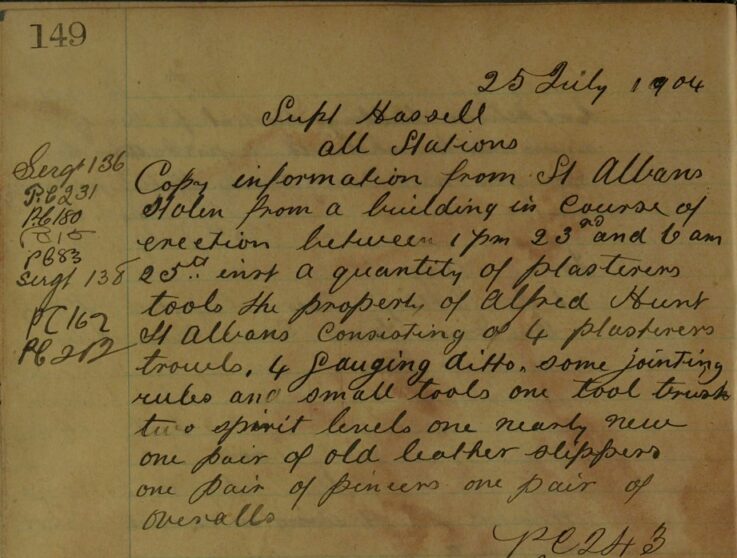 149
25 July 1904
Supt Hassell
all Stations
Sergt 136
PC 231
PC 180
PC 83
Sergt 138
PC 167
PC 212
Copy information from St Albans
Stolen from a building in course of
erection between 1 pm 23rd and 6 am
25th inst a quantity of plasterers
tools the property of Alfred Hunt
St Albans consisting of 4 plasterers
trowls, 4 gauging ditto, some jointing
rules and small tools one tool trush
two spirit levels one nearly new
one pair of old leather slippers
one pair of pincers one pair of
overalls
PC 243